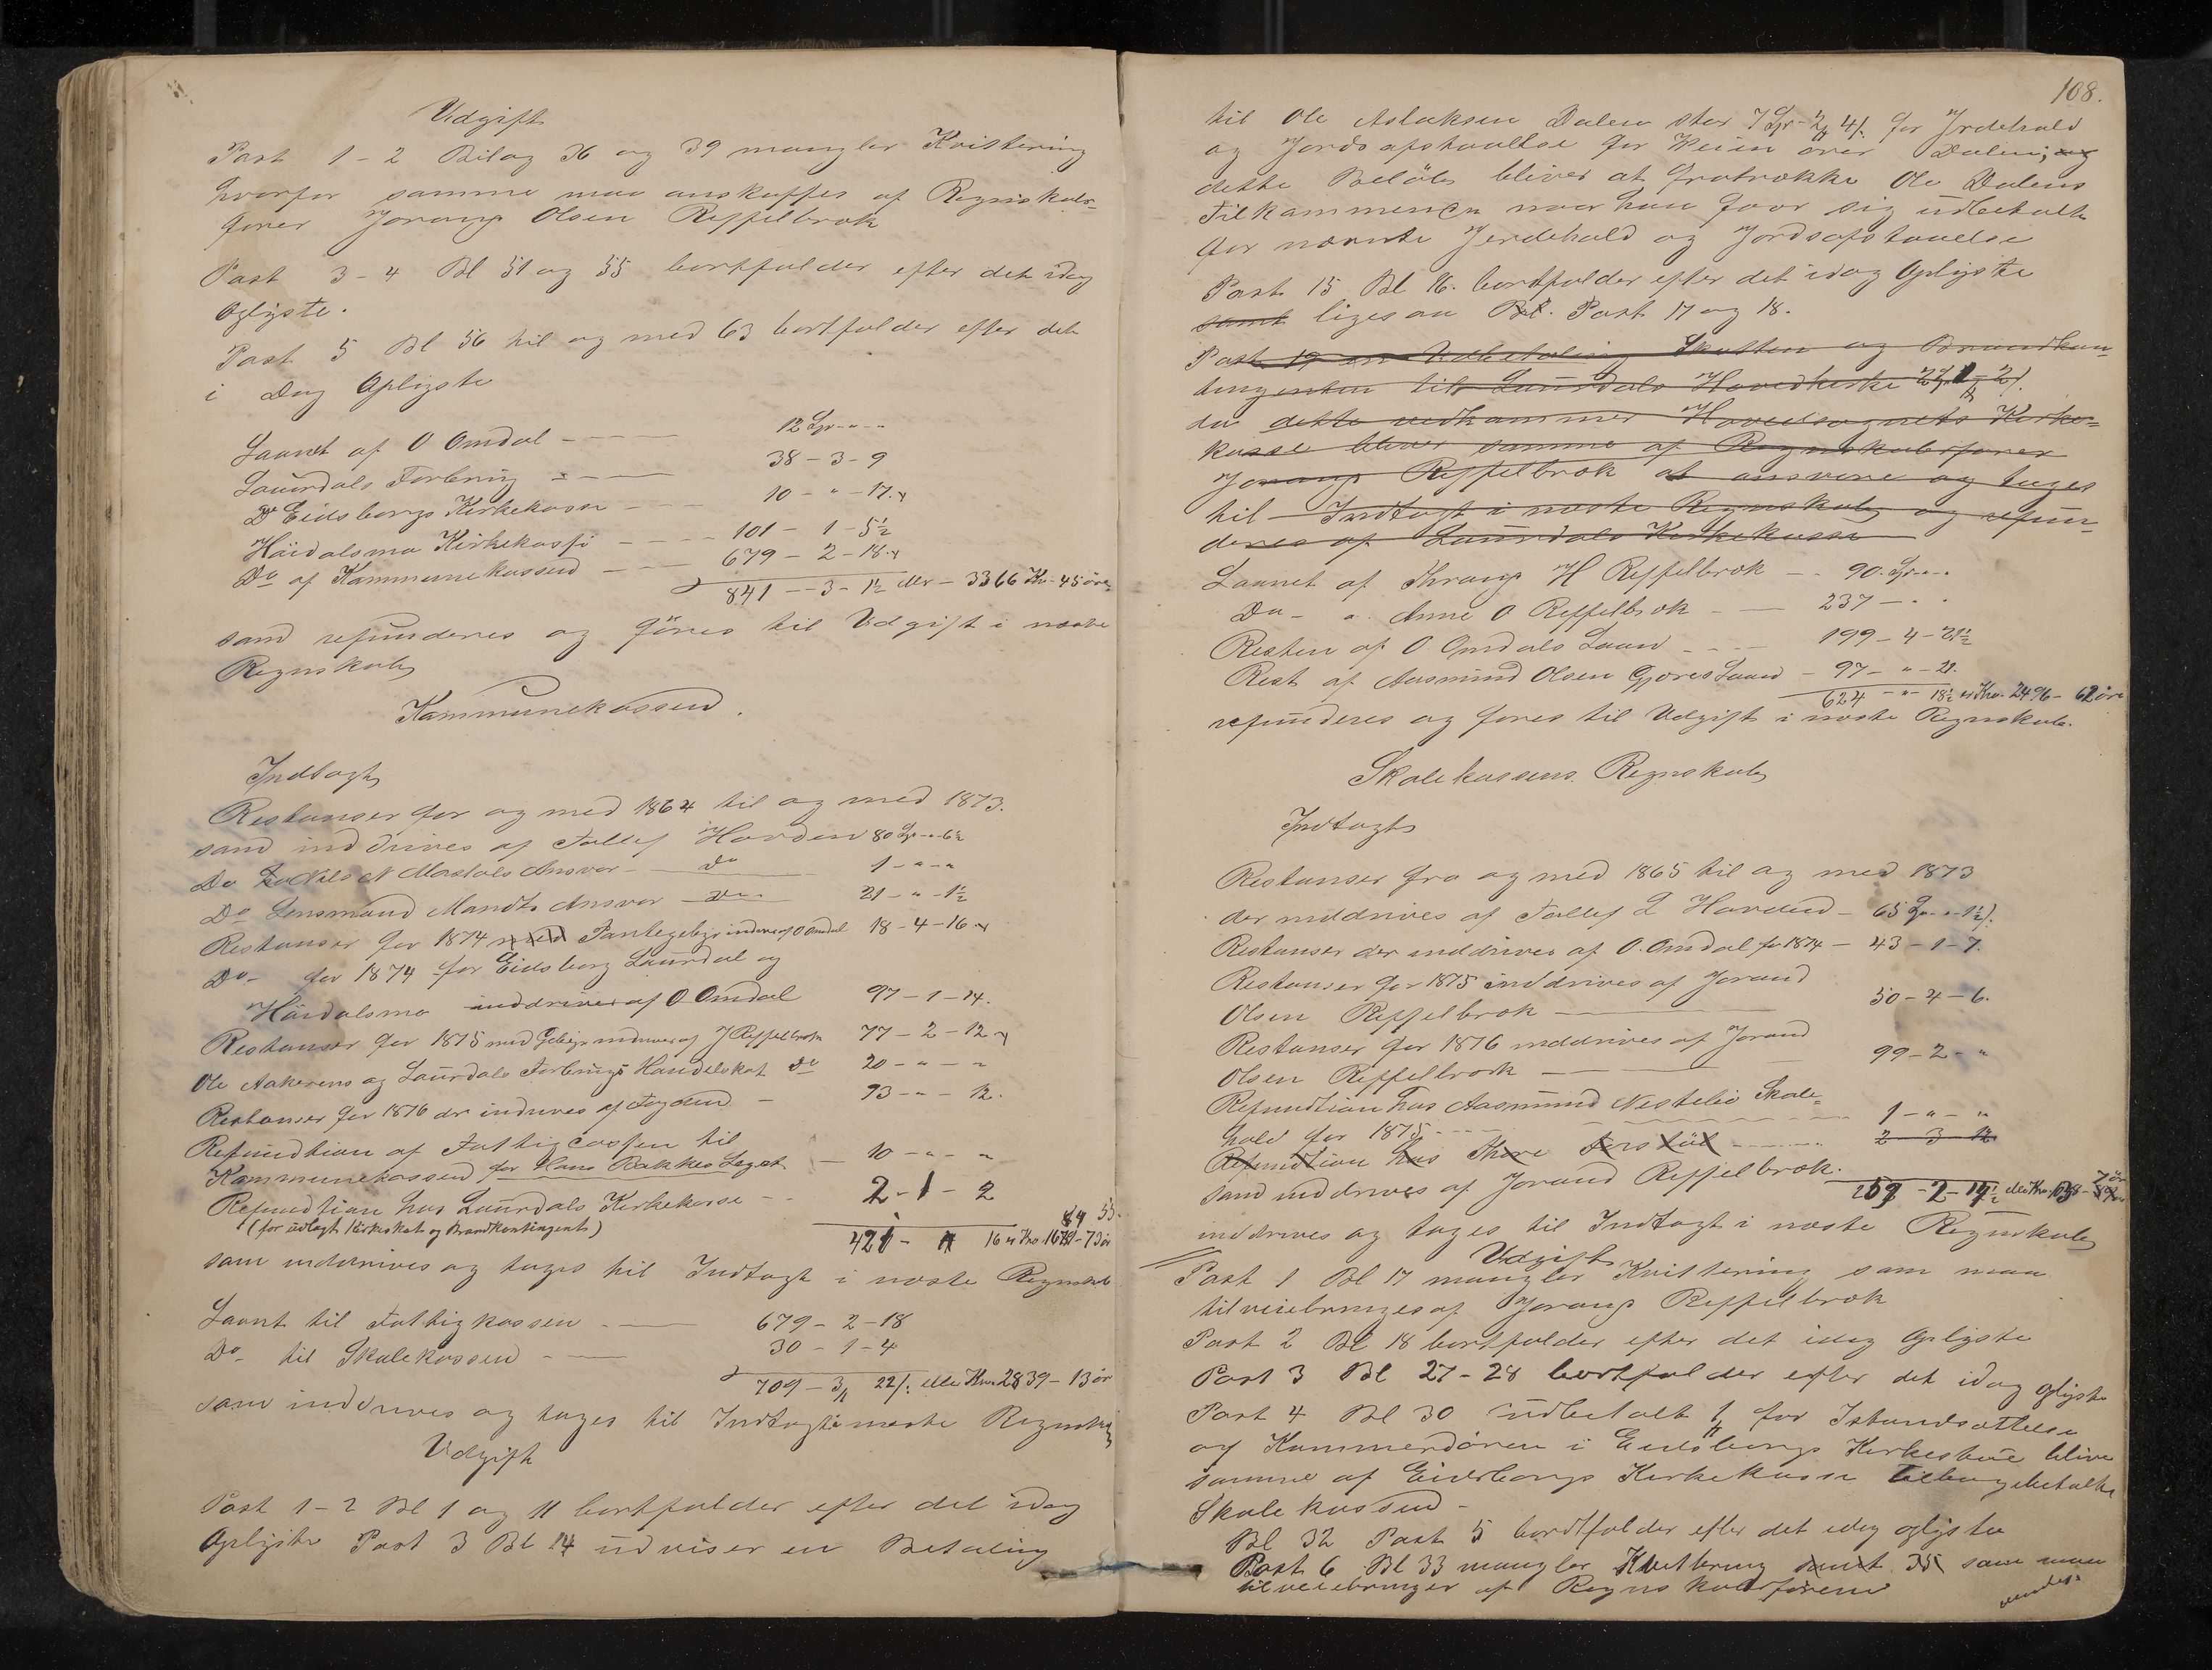 Udgift
Post 1-2 Bilag 36 og 39 mangler Kvittering
hvorfor samme maa anskaffes af Regnskabs-
fører Jorang Olsen Reppelbrok
Post 3-4 Bl 51 og 55 bortfalder efter det idag
oplyste.
Post 5 Bl 56 til og med 63 bortfalder efter det
i Dag Oplyste
Laanet af O Omdal - - - - 12 Spr - - -
Laurdals Forbrug - - - 38-3-9
Do Eidsborgs Kirkekasse - - 10 - " - 17.
Høidalsmo Kirkekasse - - - - 101 - 1 - 5½
Do af Kommunekassen - - - 679 - 2 - 18.
841 - 3 - 1½ eller - 3366 Kr - 45 øre
som refunderes og føres til Udgift i næste
Regnskab
Kommunekassen.
Indtægt
Restanser for og med 1864 til og med 1873.
som inddrives af Tallef Harden 80 Sp - " - 6½
Do Nils N Mostøls Ansvar - do 1 - " - "
Do Lensmand Mandts Ansvar - do 21 - " - 1½
Restanser for 1874 med Pantegebyr inddrives af O Omdal 18 - 4 - 16
Do - for 1874 for Eidsborg Laurdal og
Høidalsmo inddrives af O Omdal 97 - 1 - 14.
Restanser for 1875 med Gebyr inddrives af J Reppelbrok 77 - 2 - 12
Ole Aakerens og Laurdals Forbrugs Handelskat do 20 - " - "
Restanser for 1876 der inddrives af Fogden - 93 - " - 12.
Refundtion af Fattigcassen til
Kommunekassen for Hans Bakkes Legat - 10 - " - "
Refundtion hos Laurdals Kirkekasse - - 2 - 1 - 2
(for udlagt Kirkeskat og Brandkontingent) 84 53.
421 - 16 er Kro. - 73 ør
som inddrives og tages til Indtægt i næste Regnskab
Laant til Fattigkassen - - 679 - 2 - 18
Do - til Skolekassen - - 30 - 1 - 4
709 - 3 22/. eller Kro. 2839 - 13 ør
som inddrives og tages til Indtægt i næste Regnskab
Udgift
Post 1-2 Bl 1 og 11 bortfalder efter det idag
Oplyste Post 3 Bl 14 udviser en Betaling
108.
til Ole Aslaksen Dalen stor 7 Spr - 2 4/. for Jrdehald
og Jordsafstaaelse for Veien over Dalen; og
dette Beløb bliver at fratrække Ole Dalens
Tilkommende naar han faar sig udbetalt
for nævnte Jerdehald og Jordsafstaaelse
Post 15 Bl 16. bortfalder efter det idag Oplyste
samt ligesaa Bl. Post 17 og 18.
Post 19 en Udbetaling Skatten og Brandkon-
tingenten til Laurdals Hovedkirke
da dette vedkommer Hovedsognets Kirke-
kasse bliver samme af Regnskabsfører
Jorang Reppelbrok at ansvare og tages
til Indtægt i næste Regnskab og refun-
deres af Laurdals Kirkekasse
Laanet af Thrang H Reppelbrok - - 90. Sp - -
Do - a. Anne O Reppelbrok - - 237 - - -
Resten af O. Omdals Laan - - - 199 - 4 - 21½
Rest af Aasmund Olsen Gjøres Laan - 97 - " - 21.
624 - " - 18½ er Kro. 2496 - 62 øre
refunderes og føres til Udgift i næste Regnskab.
Skolekassens Regnskab
Indtægt
Restanser fra og med 1865 til og med 1873
der inddrives af Tallef L Harden - 65 Sp - " - 1½/.
Restanser der inddrives af O. Omdal for 1874 - 43 - 1 - 7.
Restanser for 1875 inddrives af Jorand
Olsen Reppelbrok - 50 - 4 - 6.
Restanser for 1876 inddrives af Jorand
Olsen Reppelbrok - 99 - 2 - "
Refundtion hos Aasmund Nestelie Skole-
hold for 1875 - - - 1 - " - "
Refundtion hos Thore 2 - 3 - 12
som inddrives af Jorand Reppelbrok.
inddrives og tages til Indtægt i næste Regnskab
Udgift
Post 1 Bl 17 mangler Kvittering som maa
tilveiebringes af Jorang Reppelbrok
Post 2 Bl 18 bortfalder efter det idag Oplyste
Post 3 Bl 27-28 bortfalder efter det idag oplyste
Post 4 Bl 30 udbetalt for Istandsættelse
af Kammerdøren i Eidsborgs Kirkestue bliver
samme af Eidsborgs Kirkekasse tilbagebetalte
Skolekassen -
Bl 32 Post 5 bortfalder efter det idag oplyste
Post 6 Bl 33 mangler Kvittering samt 35 som maa
tilveiebringes af Regnskabsføreren
vendes.